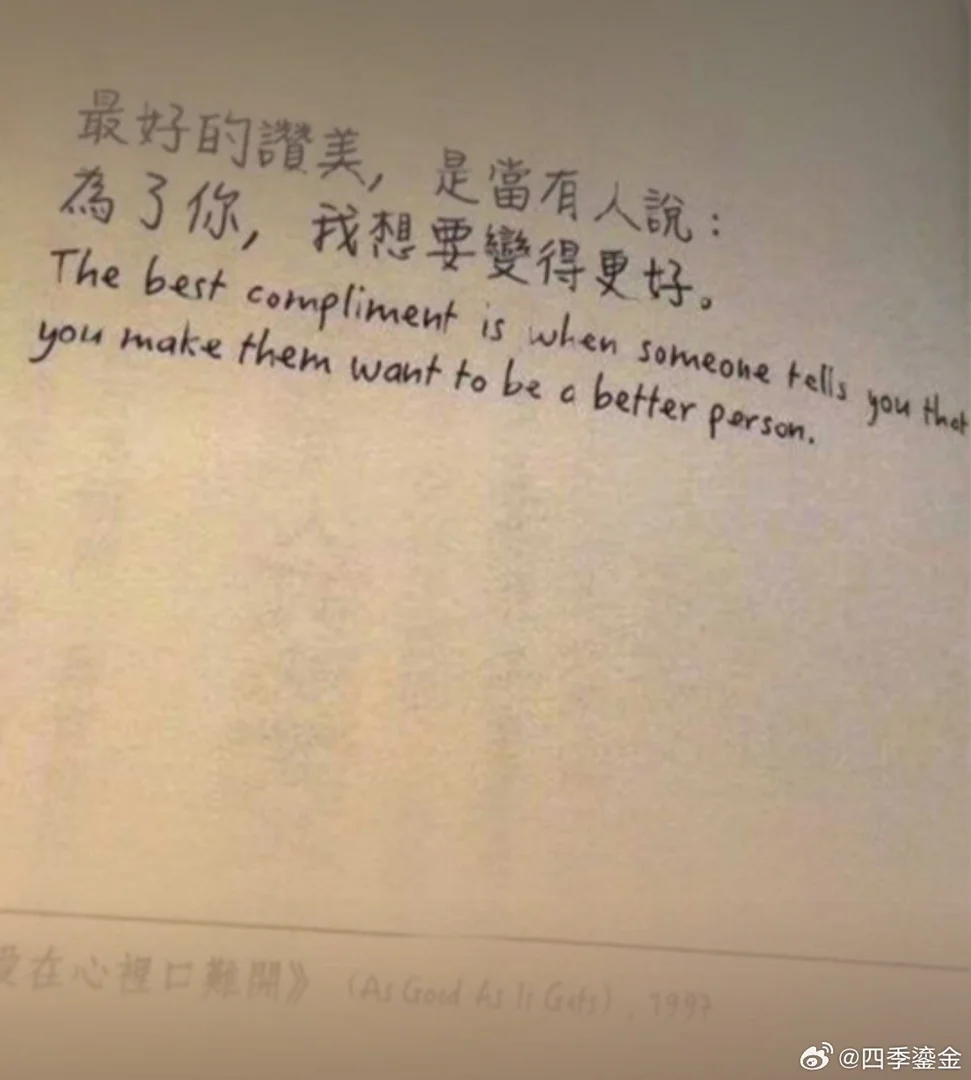 最好的讚美，是當有人說：
為了你，我想要變得更好。
The best compliment is when someone tells you that
you make them want to be a better person.
愛在心裡口難開》(As Good As It Gets), 1997
@四季鎏金